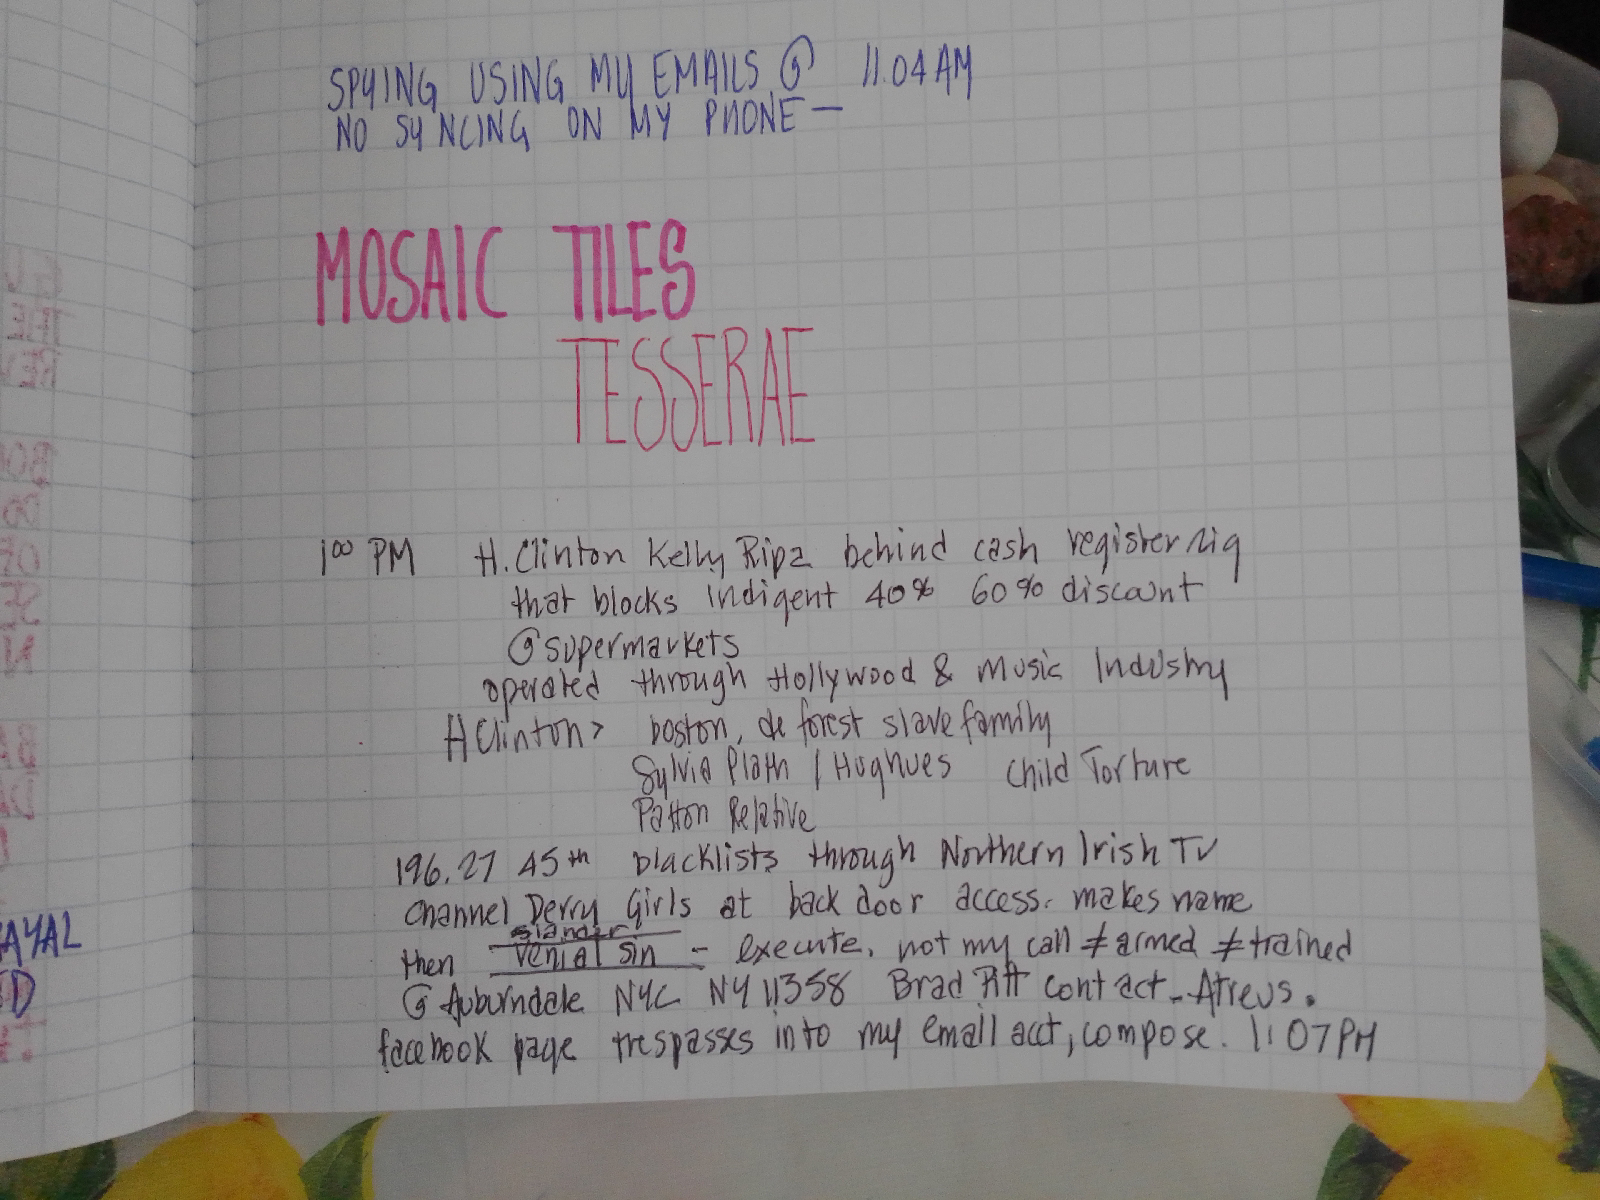 SPYING USING MY EMAILS @ 11.04 AM
NO SYNCING ON MY PHONE —
MOSAIC TILES
TESSERAE
1⁰⁰ PM H. Clinton Kelly Ripa behind cash register rig
that blocks indigent 40% 60% discount
@ supermarkets
operated through Hollywood & Music Industry
H Clinton > boston, de forest slave family
Sylvia Plath / Hughues Child Torture
Patton Relative
196.27 45th blacklists through Northern Irish TV
Channel Derry Girls at back door access. makes name
slander
then venial sin - execute, not my call ≠ armed ≠ trained
@ Auburndale NYC NY 11358 Brad Pitt contact - Atreus.
facebook page trespasses into my email acct, compose. 1:07 PM
AYAL
D